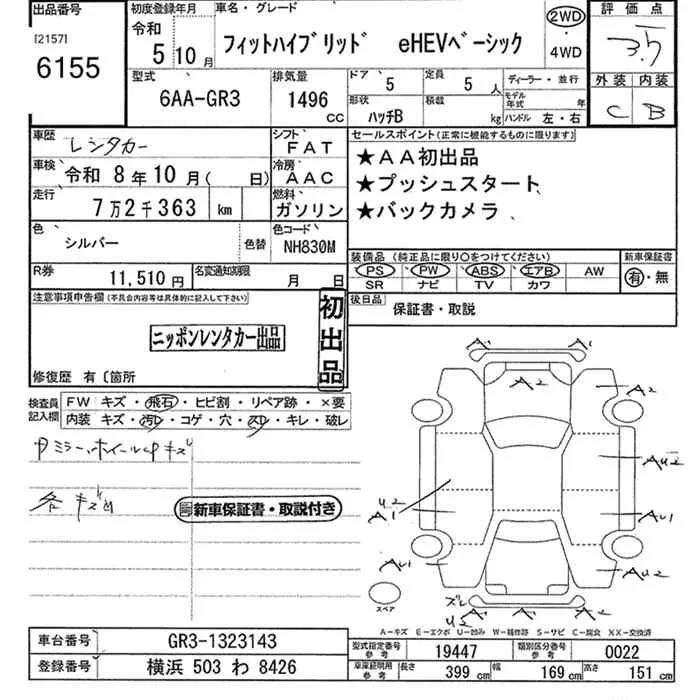 出品番号
[2157]
6155
初度登録年月
令和
5 10月
車名・グレード
フィットハイブリッド eHEVベーシック
2WD
・
4WD
評価点
3.5
外装 内装
C B
型式
6AA-GR3
排気量
1496
cc
ドア
5
定員
5 人
形状
ハッチB
積載
kg
ディーラー・並行
モデル
年式 年
ハンドル 左・右
車歴
レンタカー
シフト
FAT
車検
令和 8年10月( 日)
冷房
AAC
走行
7万2千363 km
燃料
ガソリン
色
シルバー
色替
色コード
NH830M
R券
11,510円
名変通知期限
月 日
セールスポイント(正常に機能するものに限ります)
★AA初出品
★プッシュスタート
★バックカメラ
装備品 (純正品に限り○をつけてください)
PS PW ABS エアB AW
SR ナビ TV カワ
新車保証書
有・無
後日品
保証書・取説
注意事項申告欄(不具合内容等は具体的に記入して下さい)
ニッポンレンタカー出品
初出品
修復歴 有〔箇所
検査員
記入欄
FW キズ・飛石・ヒビ割・リペア跡・×要
内装 キズ・汚れ・コゲ・穴・スレ・キレ・破レ
内ミラー、ホイールキズ
各キズ凹
新車保証書・取説付き
A1 A1
A2
A2
AU2
U2
A1
AU1
AU1
AU2
スペア
ズレ
U2
A1 A1
A−キズ E−エクボ U−凹み W−補修跡 S−サビ C−腐食 XX−交換済
車台番号
GR3-1323143
登録番号
横浜 503 わ 8426
型式指定番号
参考
19447
類別区分番号
参考
0022
車庫証明用
参考
長さ
399 cm
幅
169 cm
高さ
151 cm